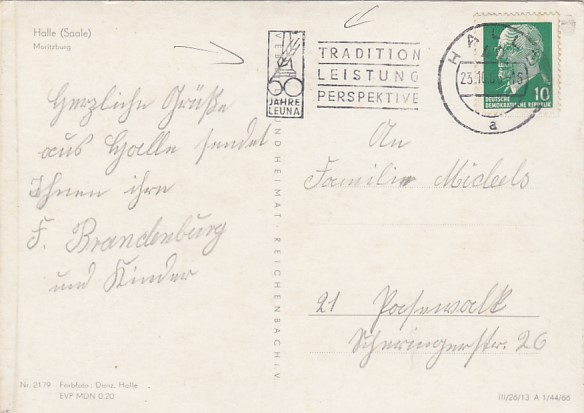 Halle (Saale)
Moritzburg
Herzliche Grüße
aus Halle sendet
Ihnen ihre
F. Brandenburg
und Kinder
60
JAHRE
LEUNA
TRADITION
LEISTUNG
PERSPEKTIVE
HALLE
23.10
a
DEUTSCHE
DEMOKRATISCHE REPUBLIK
10
An
Familie Michels
21 Pasewalk
Scheringerstr. 26
HEIMAT · REICHENBACH i. V.
Nr. 2179 Farbfoto: Danz, Halle
EVP MDN 0,20
III/26/13 A 1/44/66